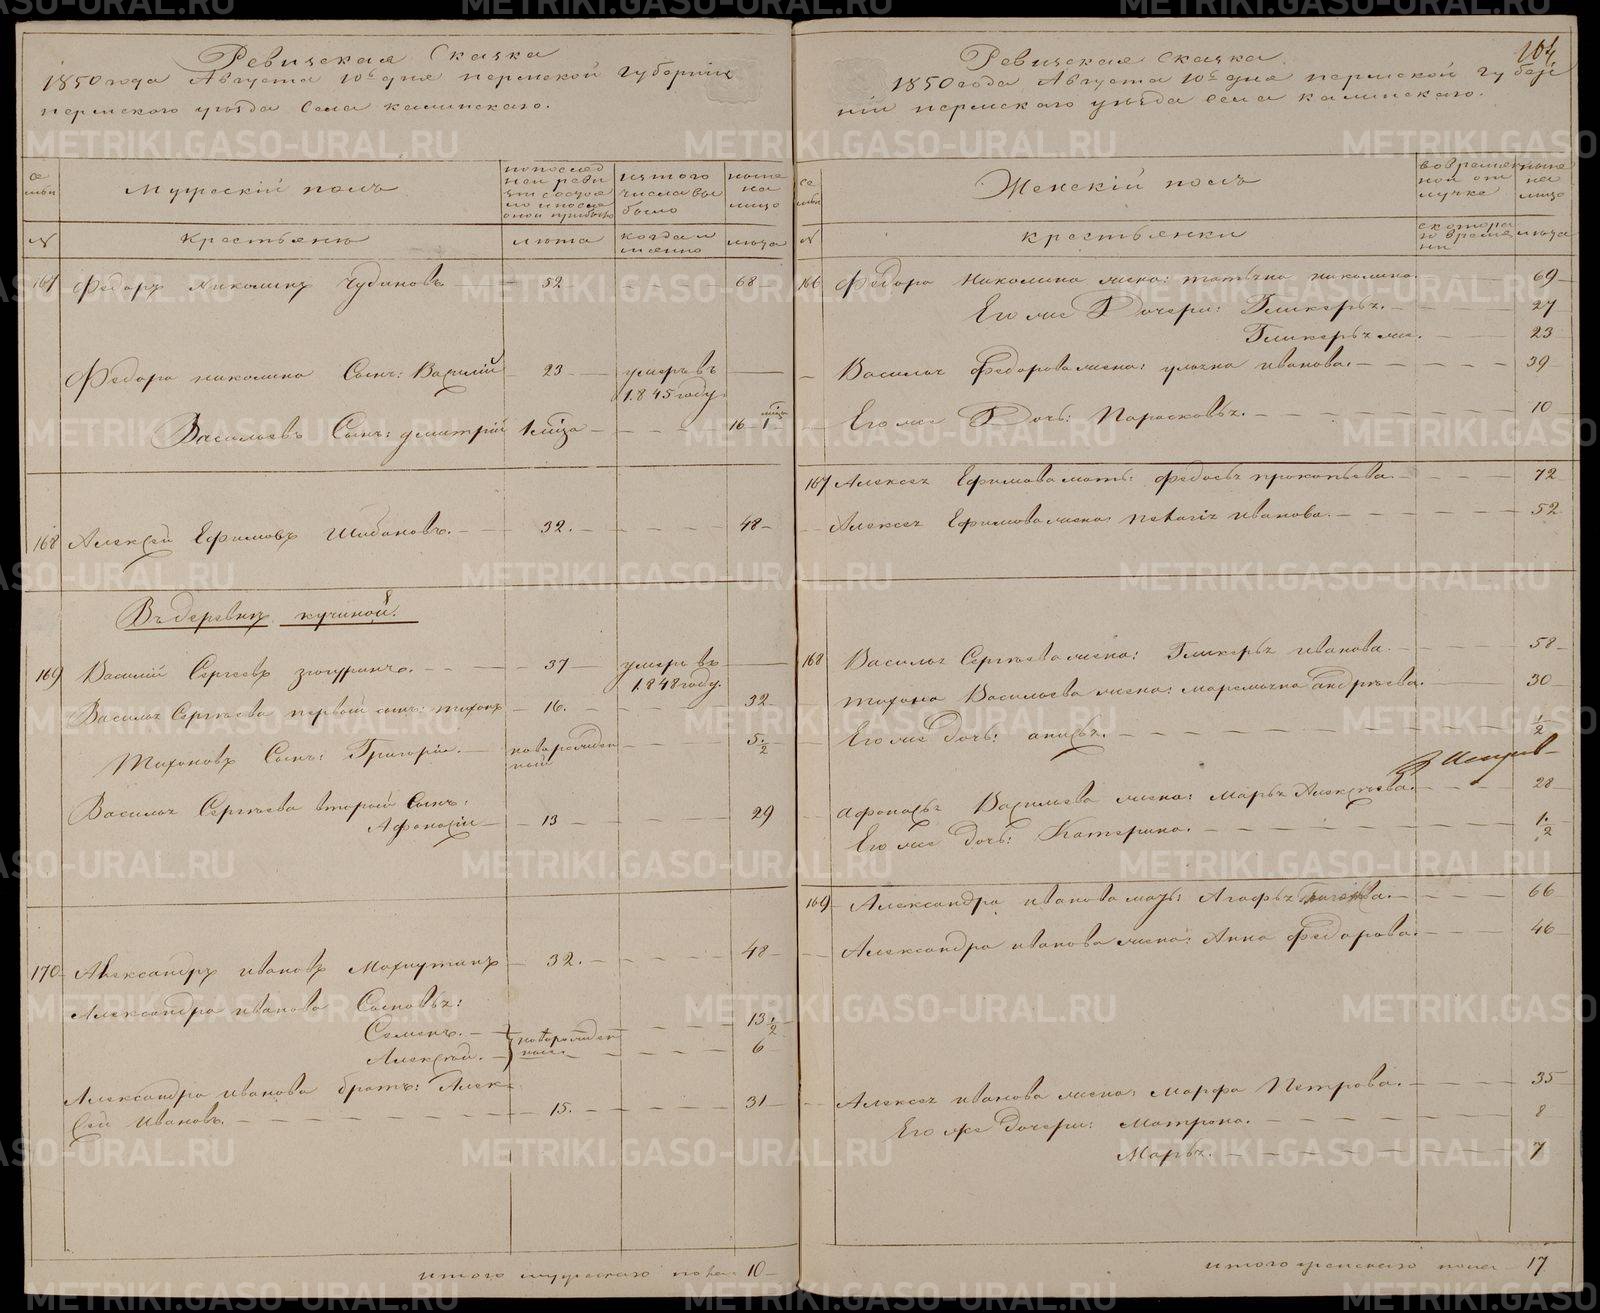 Ревизская Сказка
1850 года Августа 10го дня пермской губернии
пермского уъзда Села калинскаго.
се
мьи
Мужескій полъ
по послед
ней реви
зіи состоя
ло и после
оной прибыло
изтого
числа вы
было
ныне
на
лицо
№
крестьяне
лета
когда и
менно
лета
167 Федоръ Никоминъ Чудиновъ 52 68
Федора никомина Сынъ: Василій 23 умеръ въ
1845 году
Васильевъ Сынъ: дмитрій 1 мѣца 16 1 мѣца
168 Алексѣй Ефимовъ Шибановъ. 32. 48
Въ деревнѣ кучиной.
169 Василій Сергеевъ 37 умеръ въ
1848 году.
Василья Сергѣева первой сынъ: тихонъ 16. 32
Тихоновъ Сынъ: Григорій. новорожден
ной 5 1/2
Василья Сергѣева второй Сынъ:
Афонасій 13 29
170 Александръ ивановъ 32. 48
Александра иванова Сыновья:
Семенъ. новорожден 13 1/2
Алексѣй. ные 6
Александра иванова братъ: Алек-
сѣй Ивановъ. 15. 31
итого мужескаго пола 10
104
Ревизская Сказка
1850 года Августа 10го дня пермской губер
ніи пермскаго уъзда Села калинскаго.
се
мьи
Женскій полъ
во времян
ной от
лучке
ныне
на
лицо
№
крестьянки
с котора
го време
ни
лета
166 Федора Никомина жена: татьяна никомина 69
Его же Дочери: Гликерья. 27
Гликерья же. 23
Василья Федорова жена: ульяна иванова. 39
Его же Дочь: Парасковья. 10
167 Алексея Ефимова мать: федосья прокопьева 72
Алексея Ефимова жена иванова. 52
168 Василья Сергѣева жена: Гликерья иванова 58
тихона Васильева жена: андрѣева. 30
Его же дочь: 1/2
Афонасья Васильева жена: Марья Алексѣева. 28
Его же дочь: Катерина. 1 1/2
169 Александра иванова мать: Агафья 66
Александра иванова жена: Анна Федорова. 46
Алексея иванова жена: Марфа Петрова. 35
Его же дочери: Матрона. 8
Марья. 7
итого женскаго пола 17
METRIKI.GASO-URAL.RU